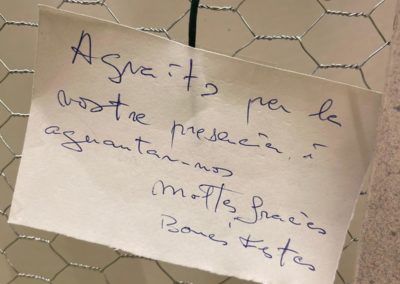 Agraïts per la
vostre presencia, i
aguantar-nos
Moltes gracies
Bones Festes